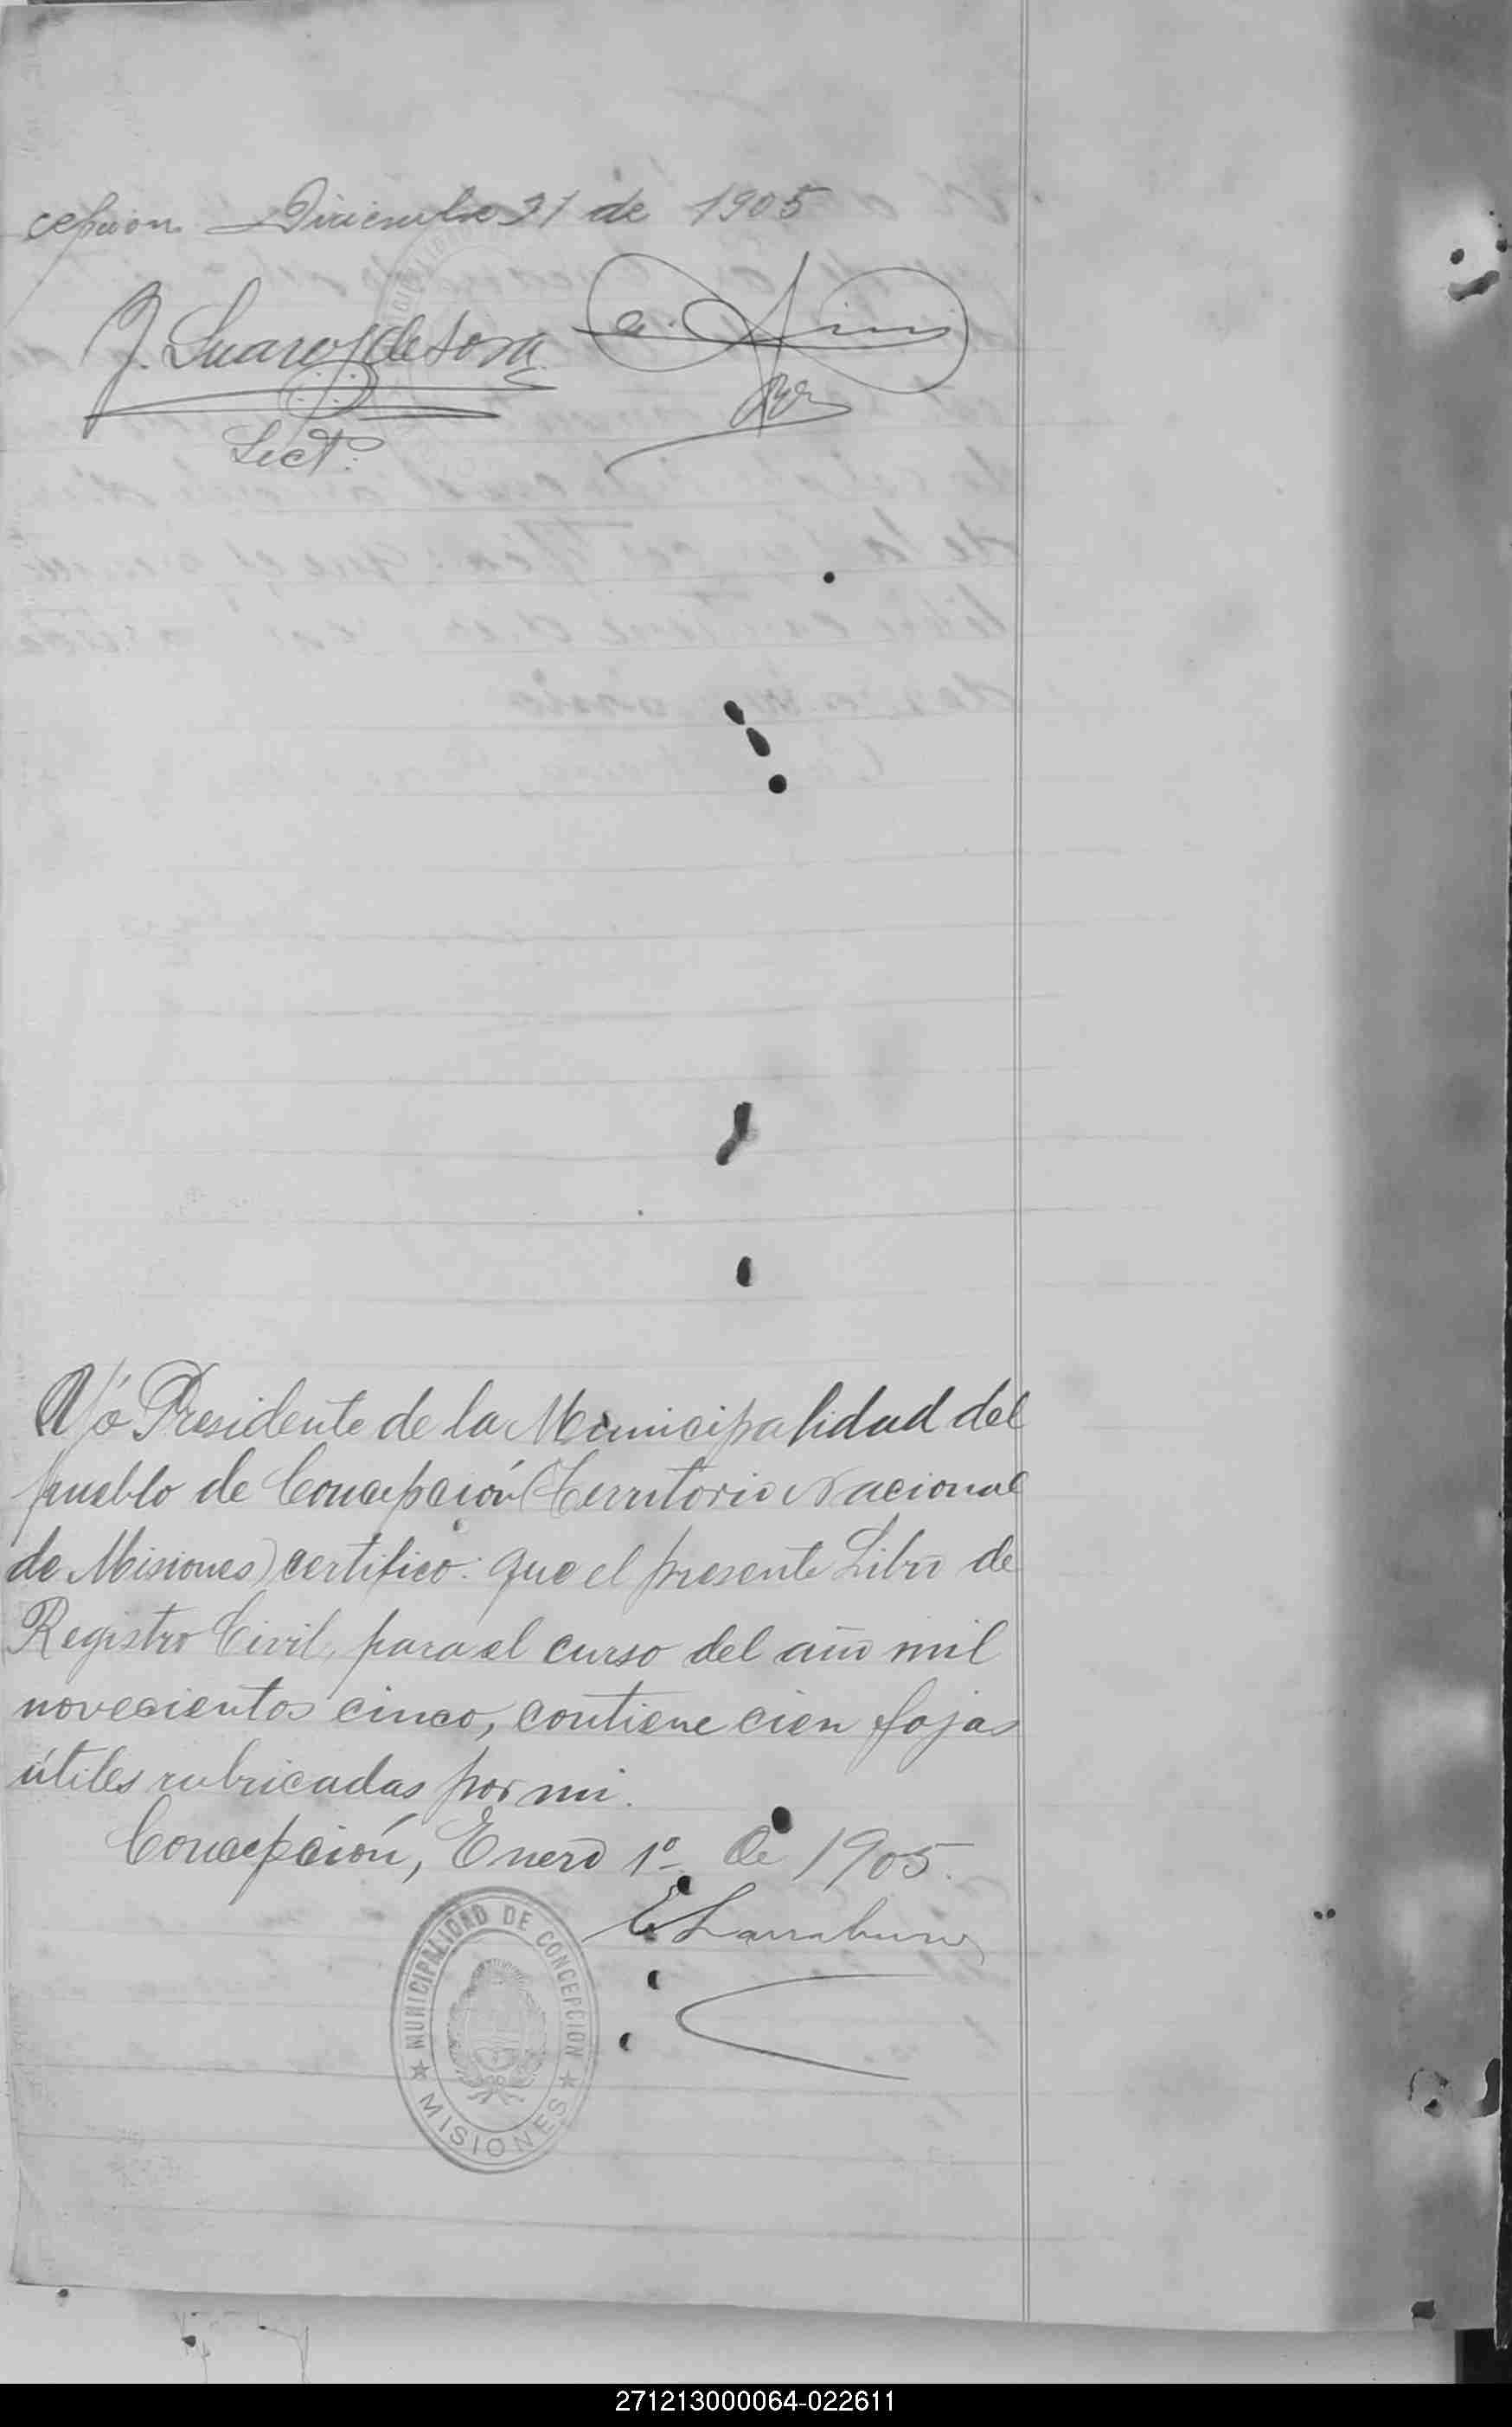 cepcion Diciembre 31 de 1905
J. Suarez de Sosa
Sect.
Yó Presidente de la Municipalidad del
pueblo de Concepción (Territorio Nacional
de Misiones) certifico: que el presente Libro de
Registro Civil, para el curso del año mil
novecientos cinco, contiene cien fojas
útiles rubricadas por mi.
Concepción, Enero 1º de 1905.
MUNICIPALIDAD DE CONCEPCION
MISIONES
271213000064-022611